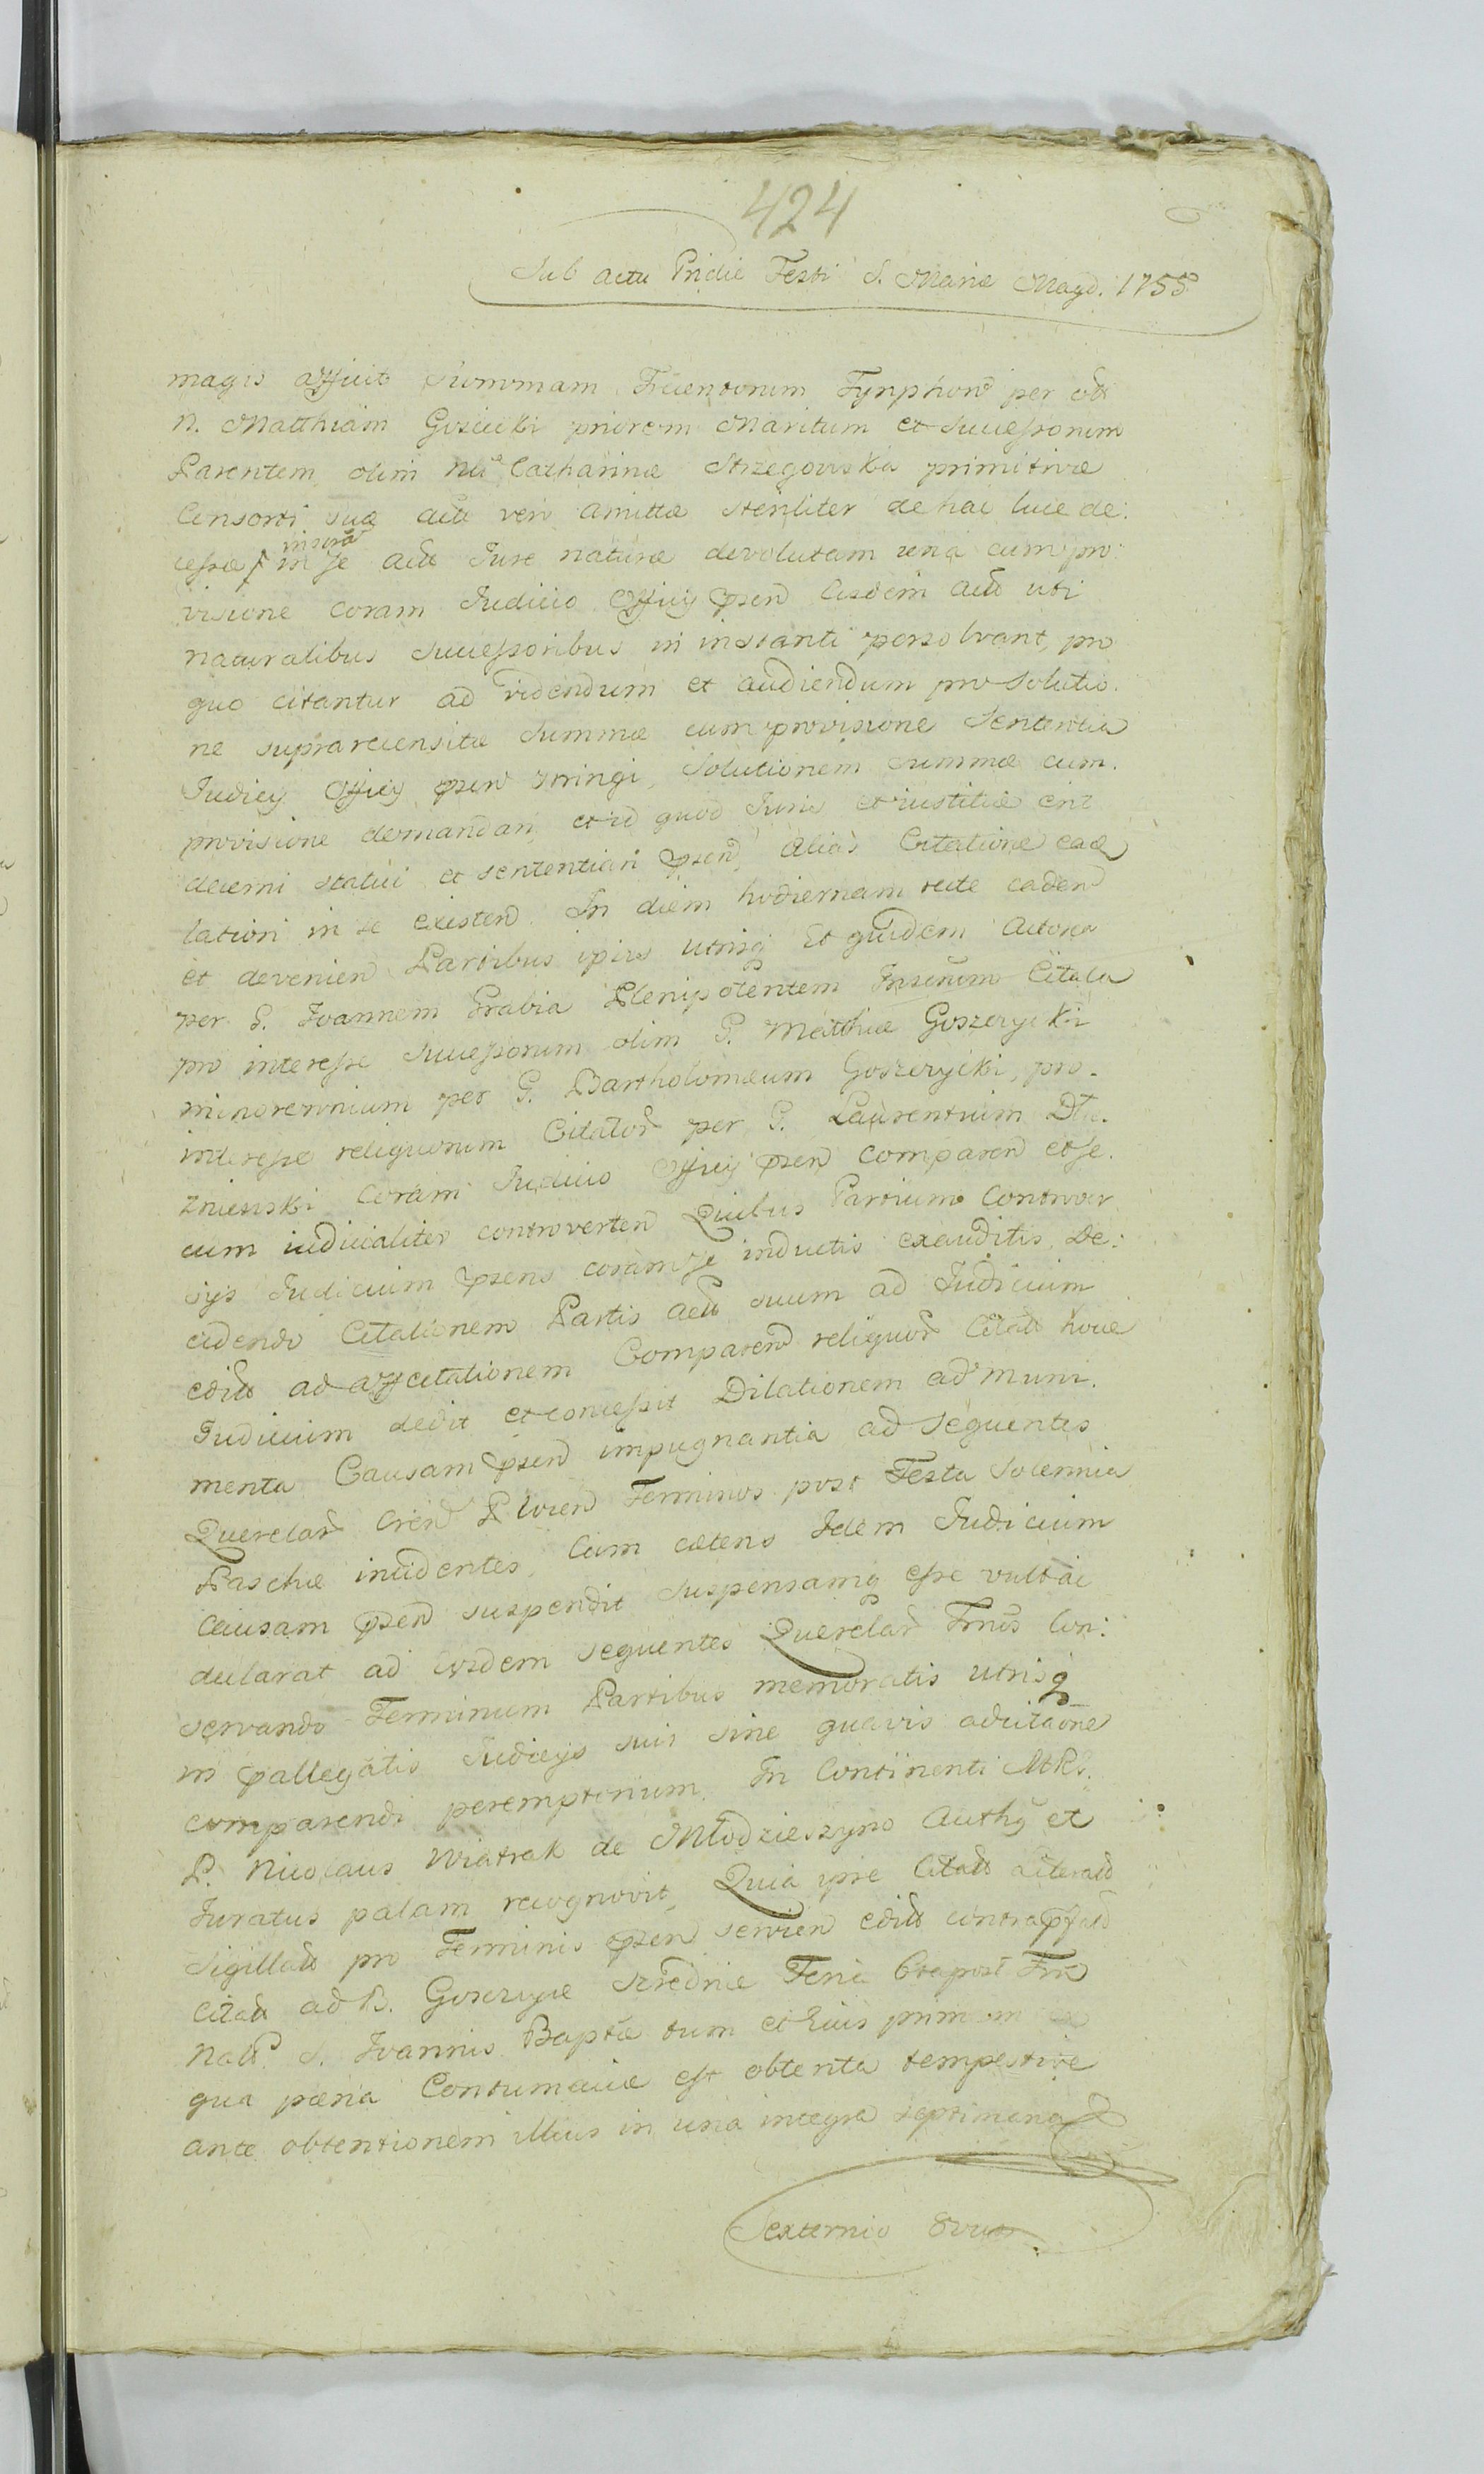 424
Sub actu Pridie Festi S. Mariæ Magd. 1755
magis affuit summam Trecentorum Tynphorũ per
N. Matthiam Goscicki priorem Maritum et Successorum
Parentem olim Catharinæ Strzegowska primitivæ
Consorti suæ vero amittæ steriliter de hac luce de:
cessæ in se Jure naturæ devolutam una cum pro:
visione coram Judicio Officij psen̄ Eisdem uti
naturalibus Successoribus in instanti persolvant, pro
quo citantur ad videndum et audiendum pro solutio.
ne suprarecensitæ summæ cum provisione Sententia
Judicij Officij psen̄ stringi, solutionem summæ cum.
provisione demandari, et id quod Juris et iustitiæ erit
decerni statui et sententiari psen̄ alias Citatione
latiori in se existen̄. In diem hodiernam recte caden̄
et devenien̄ Partibus ipsis utrisq Et quidem Actorea
per G. Joannem Grabia Plenipotentem Citata
pro interesse Successorum olim G. Matthiæ Goszczycki
minorennium per G. Bartholomæum Goszczycki, pro.
interesse reliquorum Citator̄ per G. Laurentium Dłu.
zniewski coram Judicio Officij psen̄ comparen̄ et se.
cum iudicialiter controverten̄ Quibus Partium Controver
sijs Judicium psens coram se inductis exauditis, De:
cidendo Citationem Partis suum ad Judicium
ad affectationem Comparen̄ reliquor̄ hocce
Judicium dedit et concessit Dilationem ad Muni.
menta Causam psen̄ impugnantia ad sequentes
Querelar̄ Terminos post Festa Solennia
Paschæ incidentes, Cum cæteris Idem Judicium
Causam psen̄ suspendit suspensamq esse vult ac
declarat ad eosdem sequentes Querelar̄ Con:
servando Terminum Partibus memoratis utrisq
in pallegatis Judicijs suis sine quavis
comparendi peremptorium. In Continenti
P. Nicolaus Wiatrak de Młodzieszyno Auth̄ et
Juratus palam recognovit, Quia ipse
Sigillat̄ pro Terminis psen̄ servien̄
ad B. Goszczyce Srzednie Feria post
S. Joannis Baptæ tum et Eius
qua pæna Contumaciæ est obtenta tempestive
ante obtentionem illius in una integra septimana
Sexternio